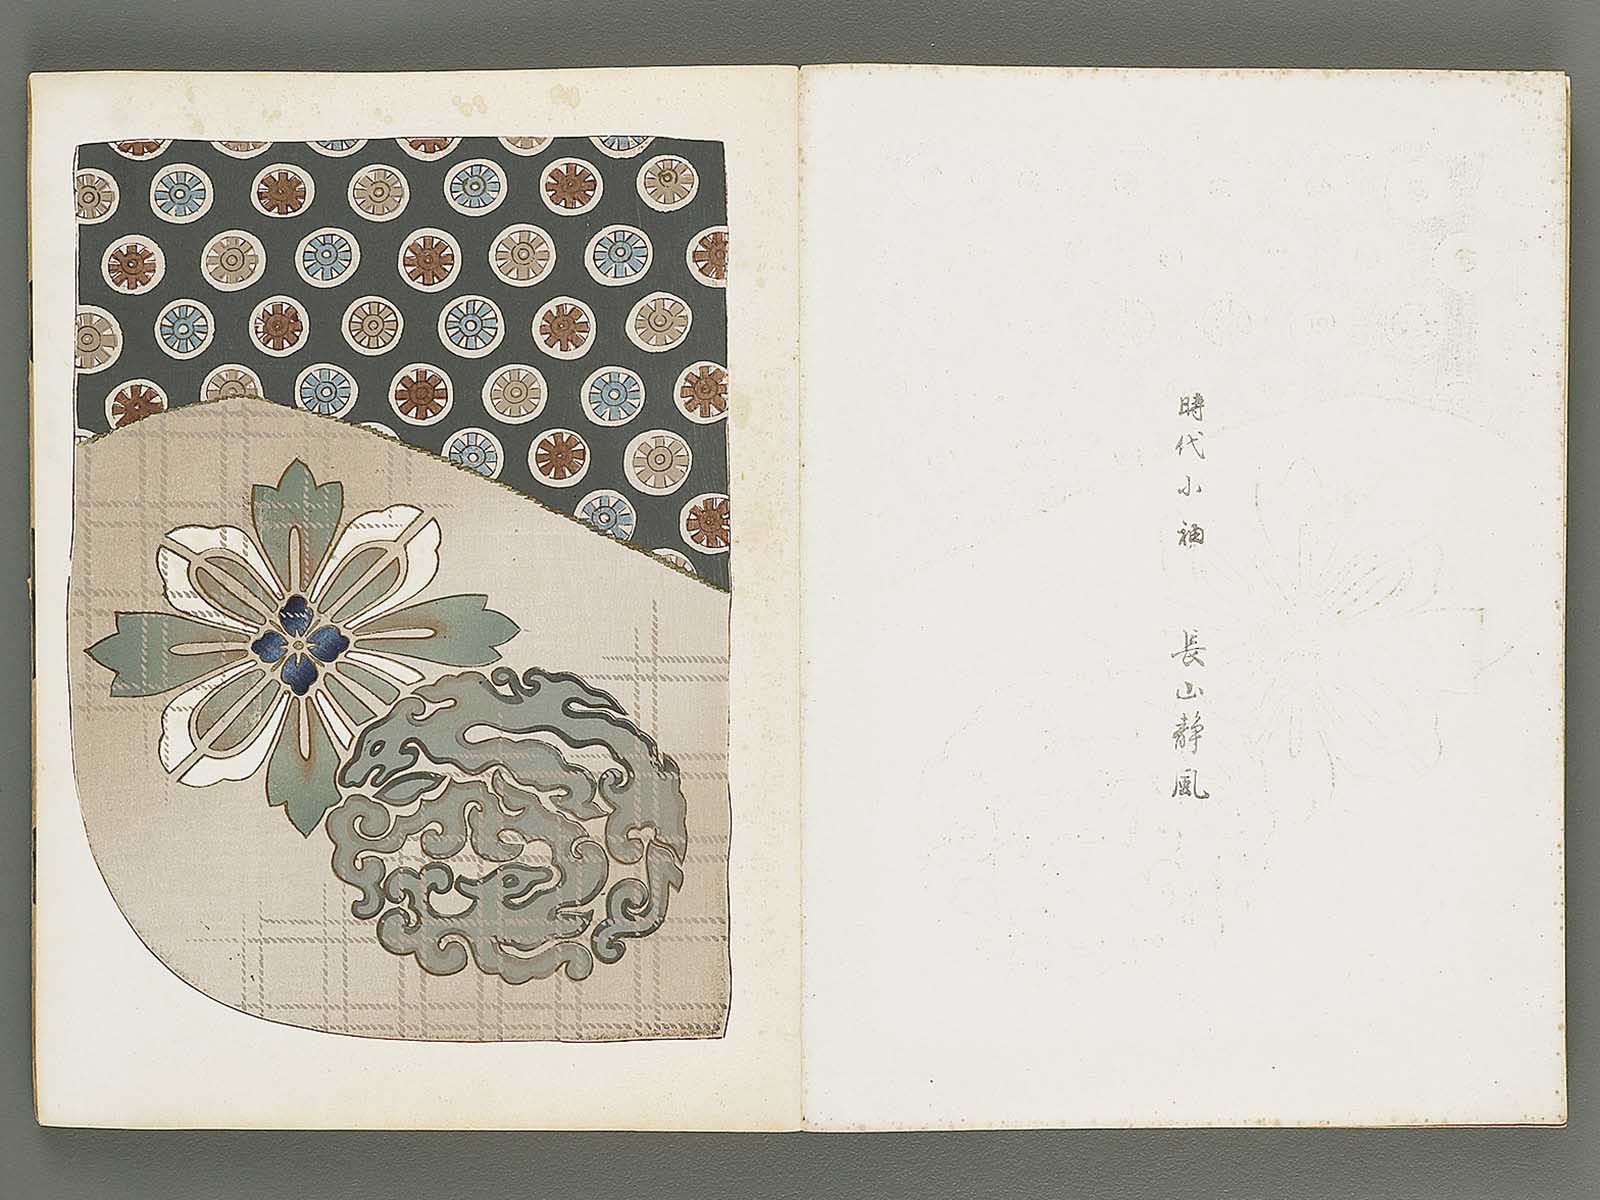 時代小袖　長山静風